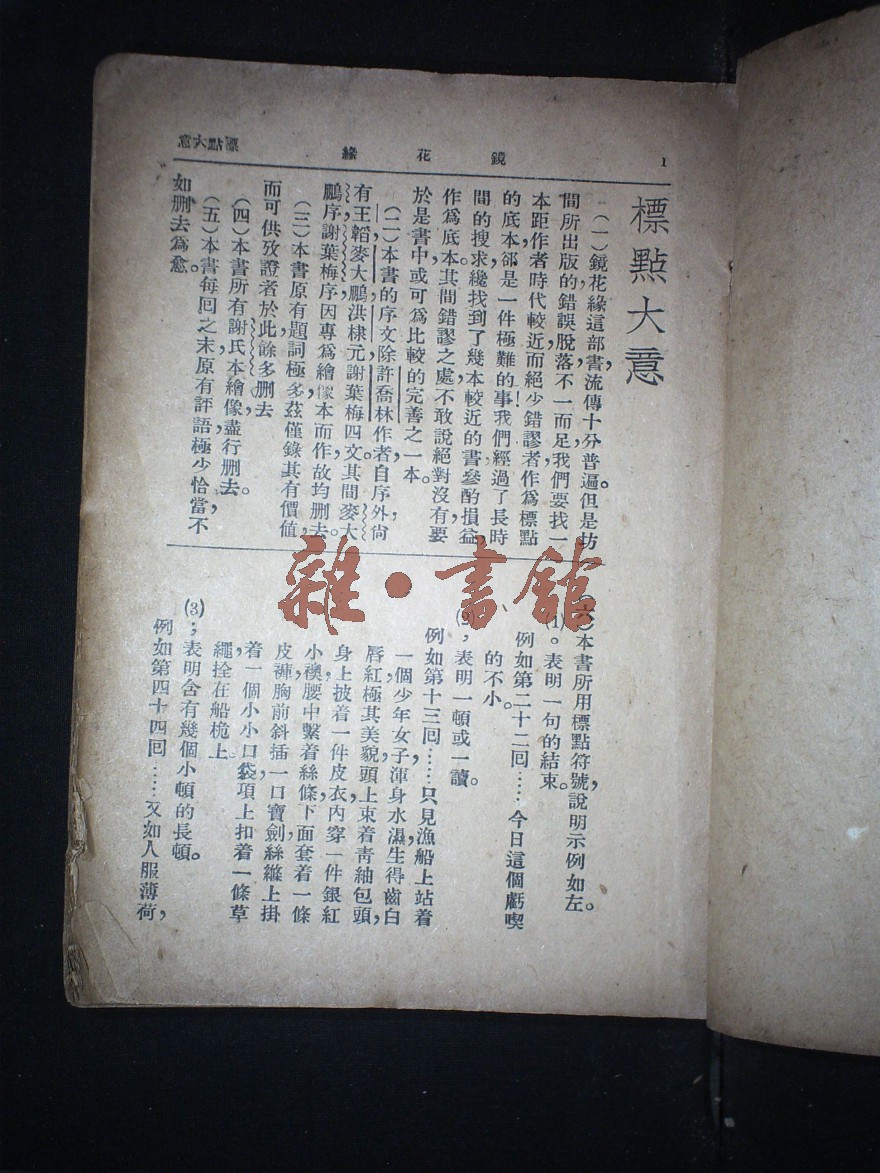 標點大意
鏡花緣
1
標點大意
(一)鏡花緣這部書,流傳十分普遍。但是坊
間所出版的錯誤脫落不一而足,我們要找一
本距作者時代較近而絕少錯謬者作爲標點
的底本,卻是一件極難的事!我們經過了長時
間的搜求,纔找到了幾本較近的書,參酌損益,
作爲底本。其間錯謬之處,不敢說絕對沒有,要
於是書中或可爲比較的完善之一本。
(二)本書的序文,除許喬林,作者自序外,尙
有王韜,麥大鵬,洪棣元,謝葉梅四文。其間麥大
鵬序,謝葉梅序,因專爲繪像本而作,故均刪去。
(三)本書原有題詞極多,茲僅錄其有價值,
而可供攷證者,於此餘多刪去
(四)本書所有謝氏本繪像,盡行刪去。
(五)本書每囘之末,原有評語,極少恰當,不
如刪去爲愈。
(六)本書所用標點符號,說明示例如左。
(1)。表明一句的結束。
例如第二十二囘……今日這個虧喫
的不小。
,表明一頓或一讀。
例如第十三囘……只見漁船上站着
一個少年女子,渾身水濕,生得齒白
唇紅,極其美貌,頭上束着靑紬包頭,
身上披着一件皮衣,內穿一件銀紅
小襖,腰中繫着絲條,下面套着一條
皮褲,胸前斜插一口寶劍,絲縧上掛
着一個小小口袋,項上扣着一條草
繩,拴在船桅上。
(3);表明含有幾個小頓的長頓。
例如第四十四囘……又如人服薄荷,
雜·書館